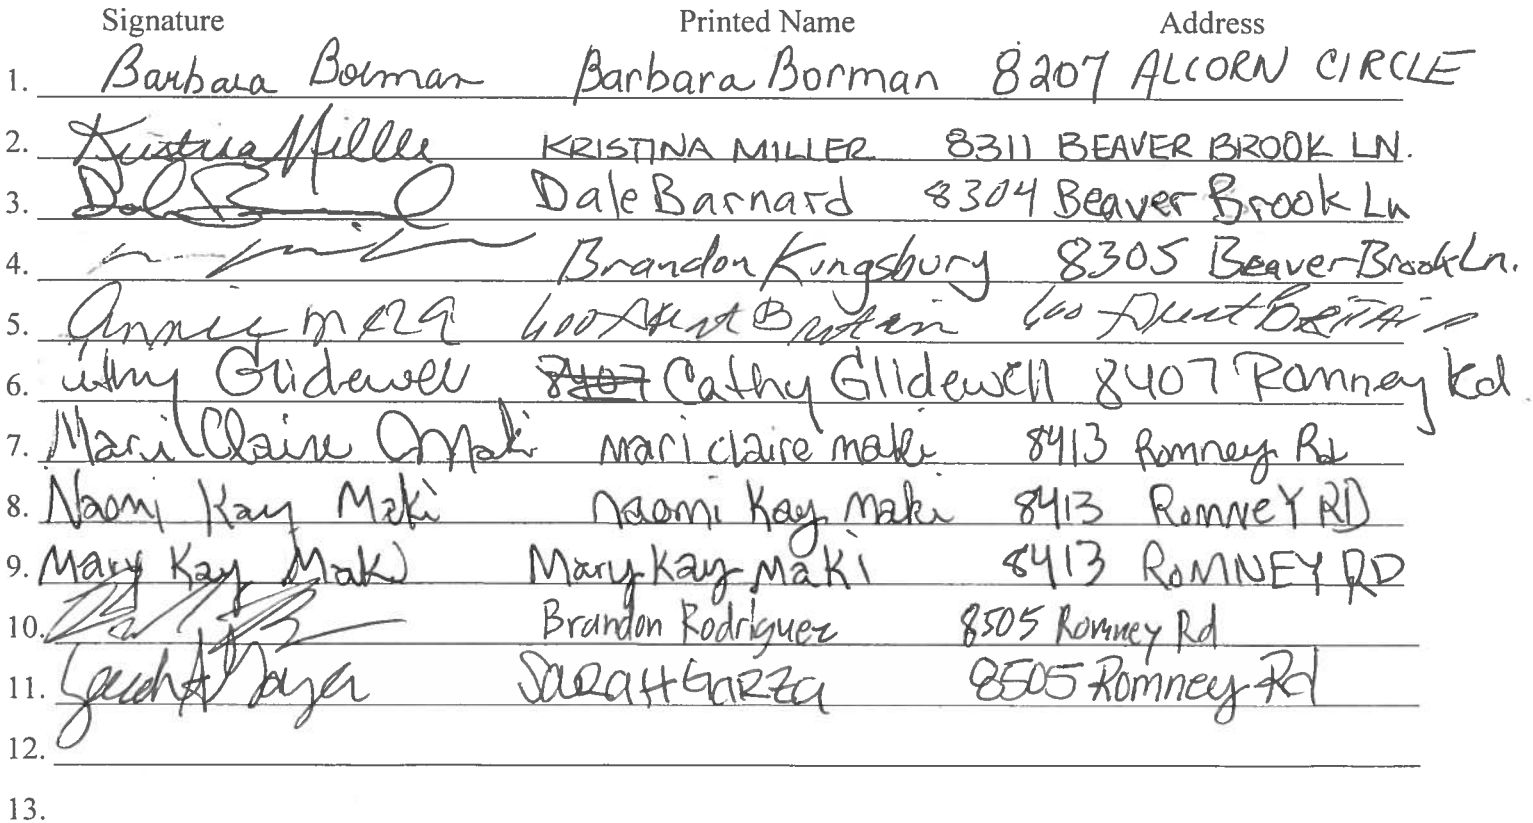 Signature Printed Name Address
1. Barbara Borman Barbara Borman 8207 ALCORN CIRCLE
2. Kristina Miller KRISTINA MILLER 8311 BEAVER BROOK LN.
3. Dale Barnard 8304 Beaver Brook Ln
4. Brandon Kingsbury 8305 Beaver Brook Ln.
5. Annie 600 Great Britain 600 Great BRITAIN
6. Cathy Glidewell 8407 Cathy Glidewell 8407 Romney Rd
7. Mari Claire Maki mari claire maki 8413 Romney Rd
8. Naomi Kay Maki naomi Kay maki 8413 ROMNEY RD
9. Mary Kay Maki Mary Kay Maki 8413 ROMNEY RD
10. Brandon Rodriguez 8505 Romney Rd
11. Sarah A Garza SARAH GARZA 8505 Romney Rd
12.
13.